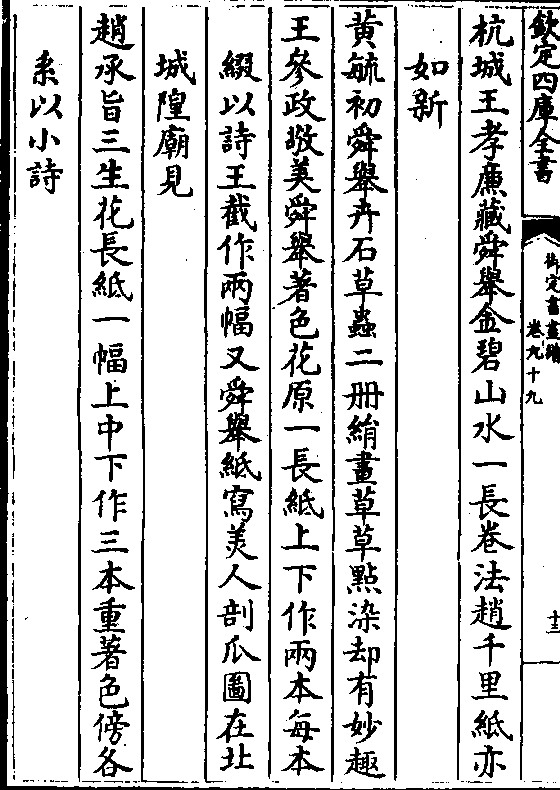 欽定四庫全書
御定書畫譜
卷九十九
十三
杭城王孝廉藏舜舉金碧山水一長卷法趙千里紙亦
如新
黄毓初舜舉卉石草蟲二冊絹畫草草點染却有妙趣
王參政敬美舜舉著色花原一長紙上下作兩本每本
綴以詩王截作兩幅又舜舉紙寫美人剖瓜圖在北
城隍廟見
趙承旨三生花長紙一幅上中下作三本重著色傍各
系以小詩